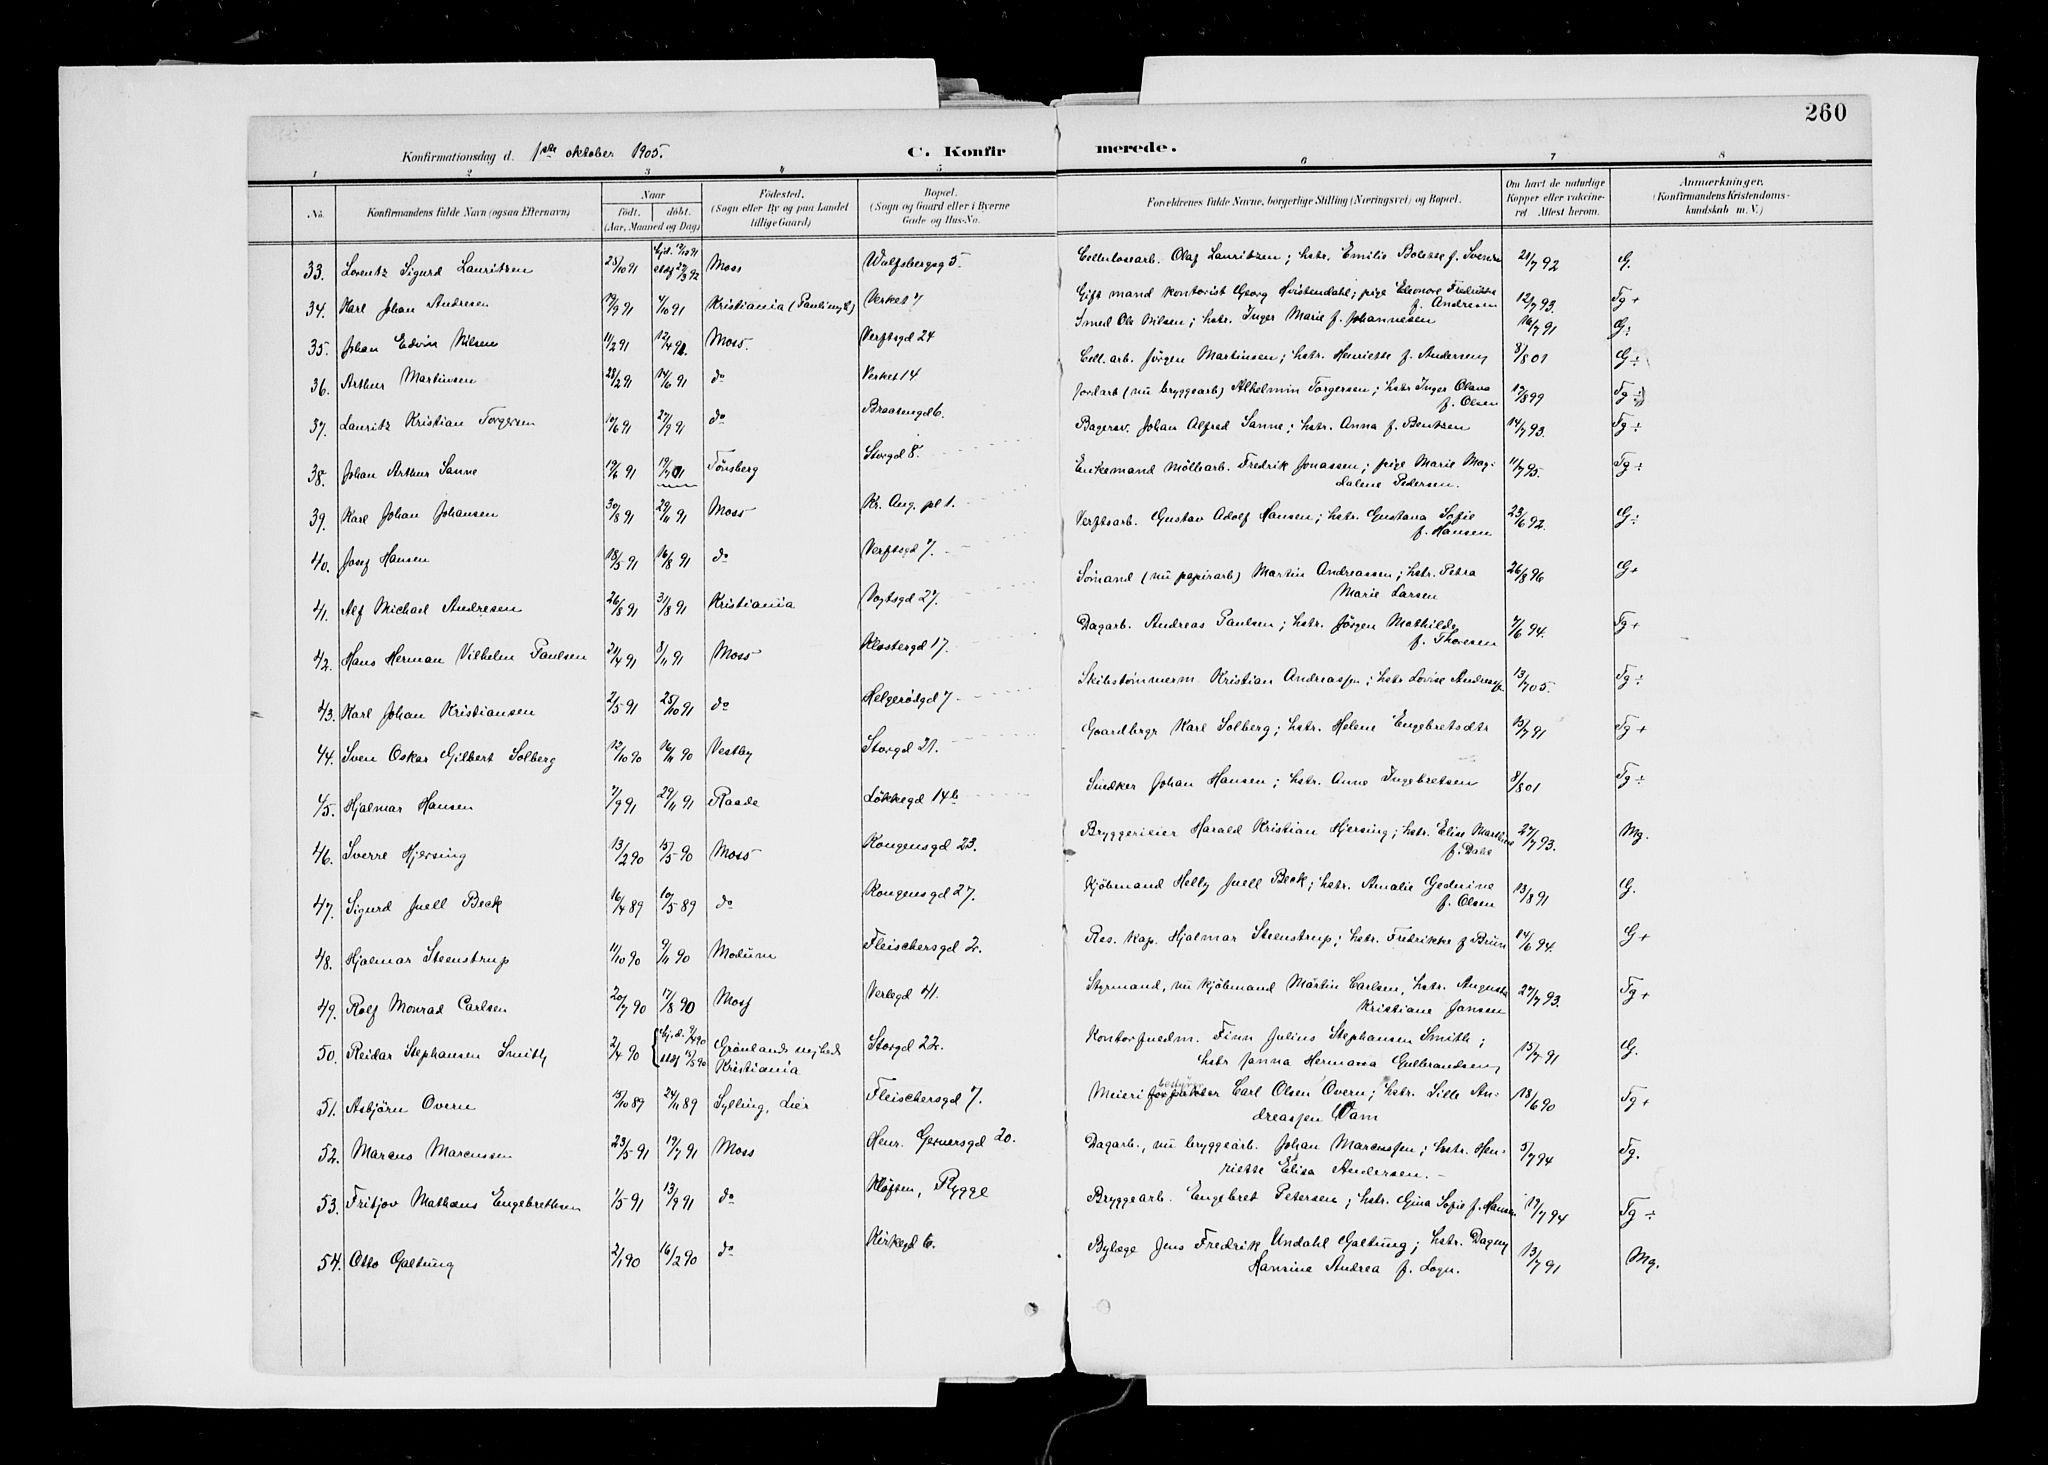 260
Konfirmationsdag d. 1ste oktober 1905. C. Konfirmerede.
1 2 3 4 5 6 7 8
No. Konfirmandens fulde Navn (ogsaa Efternavn) Naar født. døbt. (Aar, Maaned og Dag) Fødested. (Sogn eller By og paa Landet tillige Gaard) Bopæl. (Sogn og Gaard eller i Byerne Gade og Hus-No. Forældrenes fulde Navne, borgerlige Stilling (Næringsvei) og Bopæl. Om havt de naturlige Kopper eller vakcineret Attest herom. Anmærkninger. (Konfirmandens Kristendomskundskab m. V.)
33. Lorentz Sigurd Lauritzen 28/10 91 Moss Wulfsbergsg 5. Cellulosearb. Olaf Lauritzen; hstr. Emilie Bolette f. Svendsen 21/7 92 G.
34. Karl Johan Andresen 19/9 91 4/10 91 Kristiania Verket 7 Gift mand kontorist Georg Hvistendahl; pige Eleonore Fredrikke f. Andresen 12/7 93. Tg +
35. Johan Edvin Nilsen 11/2 91 12/4 91. Moss. Verftsgd 24 Smed Ole Nilsen; hstr. Inger Marie f. Johannesen 16/7 91 G ÷
36. Arthur Martinsen 28/2 91 14/6 91 do Verket 14 Cell. arb. Jørgen Martinsen; hstr. Henriette f. Andersen 8/8 01 G ÷
37. Lauritz Kristian Torgersen 10/6 91 27/9 91 do Braatengd 6. Jordarb (nu bryggearb) Alhelmin Torgersen; hstr Inger Olava f. Olsen 12/8 99 Tg ÷
38. Johan Arthur Sanne 19/6 91 19/7 91 Tønsberg Storgd 8. Bagersv. Johan Alfred Sanne; hstr. Anna f. Bentzen 14/7 93. Tg ÷
39. Karl Johan Johansen 30/8 91 29/11 91 Moss Kr. Aug. pl 1. Enkemand Møllearb. Fredrik Jonassen; pige Marie Magdalene Pedersen. 11/7 95. Tg ÷
40. Josef Hansen 18/5 91 16/8 91 do Verftsgd 7. Verftsarb. Gustav Adolf Hansen; hstr. Gustava Sofie f. Hansen 23/6 92. G ÷
41. Alf Michael Andresen 26/6 91 31/8 91 Kristiania Vogtsgd 27. Sømand (nu papirarb) Martin Andreassen; hstr. Petra Marie Larsen 26/8 96 G +
42. Hans Herman Vilhelm Paulsen 21/4 91 8/11 91 Moss Klostergd 17. Dagarb. Andreas Paulsen; hstr. Jørgen Mathilde f. Thoresen 4/6 94. Tg +
43. Karl Johan Kristiansen 2/5 91 25/10 91 do Helgerødgd 7 Skibstømmerm. Kristian Andreassen; hstr Lovise Andreassen 13/7 05. Tg ÷
44. Sven Oskar Gilbert Solberg 12/10 90 16/11 90 Vestby Storgd 21. Gaardbrgr Karl Solberg; hstr. Helene Engebretsdtr 15/7 91 Tg +
45. Hjalmar Hansen 7/9 91 29/11 91 Raade Løkkegd 14b Snedker Johan Hansen; hstr. Anne Ingebretsen 8/8 01 Tg ÷
46. Sverre Hjersing 13/2 90 15/5 90 Moss Kongensgd 23. Bryggerieier Harald Kristian Hjersing; hstr. Elise Mathilde f. Dahl 27/7 93. Mg.
47. Sigurd Juell Beck 16/4 89 10/5 89 do Kongensgd 27. Kjøbmand Helly Juell Beck; hstr. Amalie Gedvine f. Olsen 13/8 91 G.
48. Hjalmar Steenstrup 11/10 90 9/11 90 Modum Fleischersgd 2. Res. kap. Hjalmar Steenstrup; hstr. Fredrikke f Brun 14/6 94. G +
49. Rolf Monrad Carlsen 20/7 90 17/8 90 Moss Verlegd 41. Styrmand, nu kjøbmand Martin Carlsen, hstr. Augusta Kristiane Jansen 27/7 93. Tg +
50. Reidar Stephansen Smith 2/4 90 Grønlands myhed Kristiania Storgd 22. Kontorfuedm. Finn Julius Stephansen Smith; hstr Janna Hermana Gulbrandsen 15/7 91 G.
51. Asbjørn Overn 15/10 89 24/11 89 Sylling, Lier Fleischersgd 7. Meieri bestyrer Carl Olsen Overn; hstr. Lille Andreassen Vam 18/6 90 Tg +
52. Marcus Marcussen 23/5 91 19/7 91 Moss Henr. Gernersgd 20. Dagarb., nu bryggearb. Johan Marcussen; hstr. Henriette Elisa Andersen. 5/7 94 Tg.
53. Fritjov Mathæus Engebrethsen 1/5 91 13/9 91 do Kløften, Rygge Bryggearb. Engebret Petersen; hstr. Gina Sofie f. Hansen 19/7 94 Tg ÷
54. Otto Galtung 2/1 90 16/2 90 do Kirkegd 6. Bylæge Jens Fredrik Undahl Galtung; hstr. Dagny Hansine Andrea f. Logn. 13/7 91 Mg.